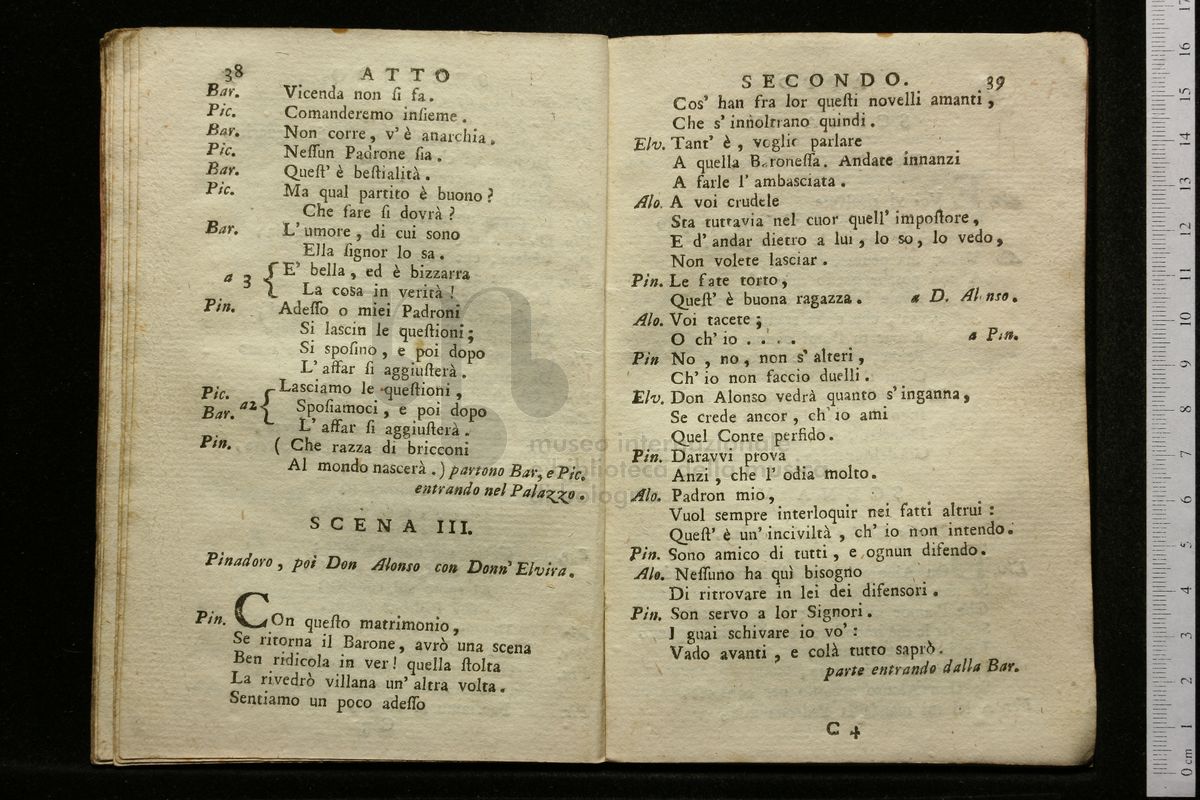 38 ATTO
Bar. Vicenda non ſi fa.
Pic. Comanderemo inſieme.
Bar. Non corre, v' è anarchia.
Pic. Neſſun Padrone ſia.
Bar. Queſt' è beſtialità.
Pic. Ma qual partito è buono?
Che fare ſi dovrà?
Bar. L' umore, di cui sono
Ella ſignor lo sa.
a 3 { E' bella, ed è bizzarra
La cosa in verità!
Pin. Adeſſo o miei Padroni
Si lascin le queſtioni;
Si spoſino, e poi dopo
L' affar ſi aggiuſterà.
Pic. Bar. a2 { Lasciamo le queſtioni,
Spoſiamoci, e poi dopo
L' affar ſi aggiuſterà.
Pin. ( Che razza di bricconi
Al mondo nascerà. ) partono Bar, e Pic.
entrando nel Palazzo.
SCENA III.
Pinadoro, poi Don Alonso con Donn' Elvira.
Pin. COn queſto matrimonio,
Se ritorna il Barone, avrò una scena
Ben ridicola in ver! quella ſtolta
La rivedrò villana un' altra volta.
Sentiamo un poco adeſſo
SECONDO. 39
Cos' han fra lor queſti novelli amanti,
Che s' innoltrano quindi.
Elv. Tant' è, voglio parlare
A quella Baroneſſa. Andate innanzi
A farle l' ambasciata.
Alo. A voi crudele
Sta tuttavia nel cuor quell' impoſtore,
E d' andar dietro a lui, lo so, lo vedo,
Non volete lasciar.
Pin. Le fate torto,
Queſt' è buona ragazza. a D. Alonso.
Alo. Voi tacete;
O ch' io .... a Pin.
Pin No, no, non s' alteri,
Ch' io non faccio duelli.
Elv. Don Alonso vedrà quanto s' inganna,
Se crede ancor, ch' io ami
Quel Conte perfido.
Pin. Daravvi prova
Anzi, che l' odia molto.
Alo. Padron mio,
Vuol sempre interloquir nei fatti altrui:
Queſt' è un' inciviltà, ch' io non intendo.
Pin. Sono amico di tutti, e ognun difendo.
Alo. Neſſuno ha quì bisogno
Di ritrovare in lei dei difensori.
Pin. Son servo a lor Signori.
I guai schivare io vo':
Vado avanti, e colà tutto saprò.
parte entrando dalla Bar.
C 4
museo internazionale
biblioteca della musica
bologna
0 cm 1 2 3 4 5 6 7 8 9 10 11 12 13 14 15 16 17